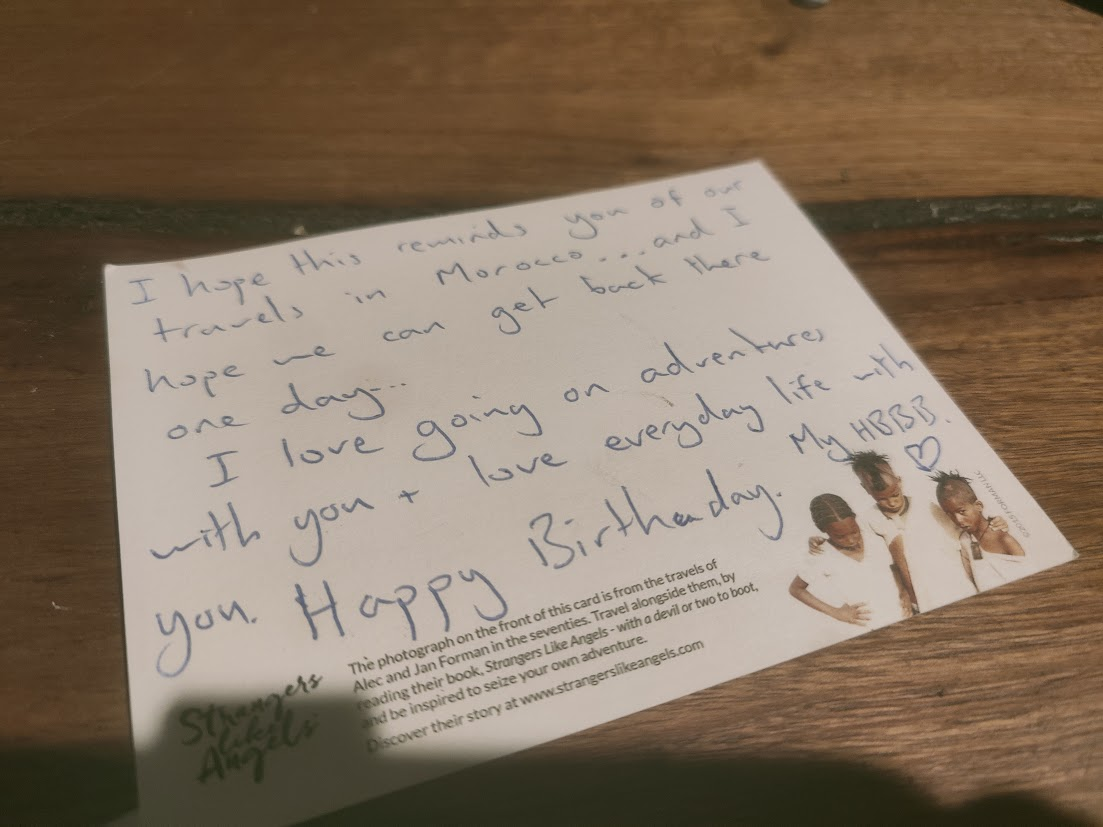 I hope this reminds you of our
travels in Morocco...and I
hope we can get back there
one day...
I love going on adventures
with you + love everyday life with
you. Happy Birthday. My HBBB.
The photograph on the front of this card is from the travels of
Alec and Jan Forman in the seventies. Travel alongside them, by
reading their book, Strangers Like Angels - with a devil or two to boot,
and be inspired to seize your own adventure.
Discover their story at www.strangerslikeangels.com
Strangers
Like
Angels